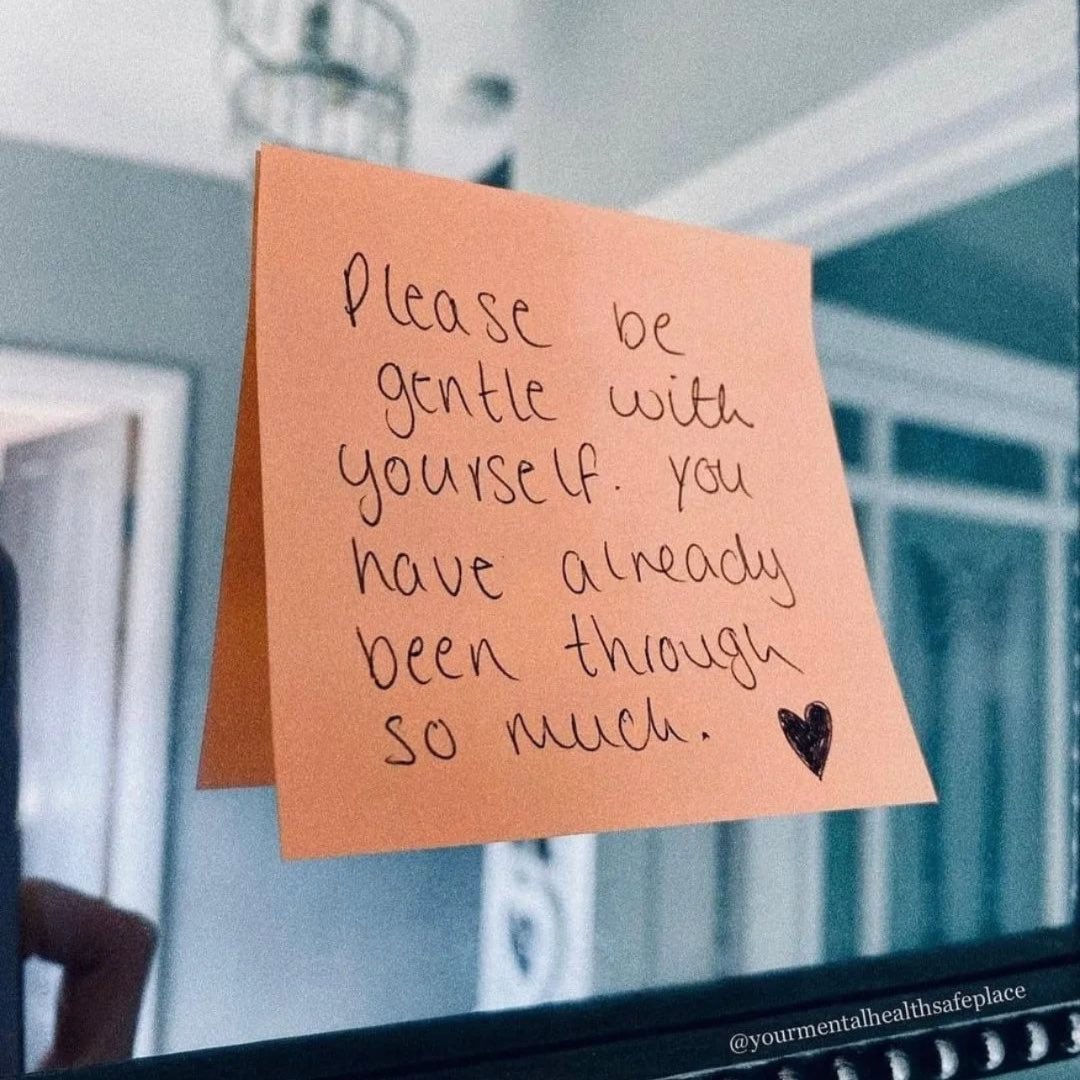 Please be
gentle with
yourself. you
have already
been through
so much.
@yourmentalhealthsafeplace